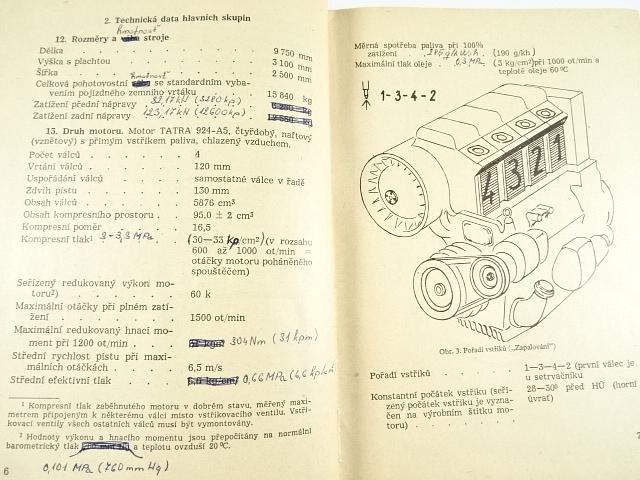 2. Technická data hlavních skupin
hmotnost
12. Rozměry a váha stroje
Délka . . . . . . . 9 750 mm
Výška s plachtou . . . . . 3 100 mm
Šířka . . . . . . . 2 500 mm
hmotnost
Celková pohotovostní se standardním vyba-
vením pojízdného zemního vrtáku . . . 15 840 kg
Zatížení přední nápravy 32,17 kN (3280 kp)
Zatížení zadní nápravy 123,17 kN (12600 kp)
13. Druh motoru. Motor TATRA 924-A5, čtyřdobý, naftový
(vznětový) s přímým vstřikem paliva, chlazený vzduchem.
Počet válců . . . . . 4
Vrtání válců . . . . . 120 mm
Uspořádání válců . . . . samostatné válce v řadě
Zdvih pístu . . . . . 130 mm
Obsah válců . . . . . 5876 cm³
Obsah kompresního prostoru . . 95,0 ± 2 cm³
Kompresní poměr . . . . 16,5
Kompresní tlak¹ 3-3,3 MPa . (30—33 kp/cm²) (v rozsahu
600 až 1000 ot/min =
otáčky motoru poháněného
spouštěčem)
Seřízený redukovaný výkon mo-
toru²) . . . . . . 60 k
Maximální otáčky při plném zatí-
žení . . . . . . 1500 ot/min
Maximální redukovaný hnací mo-
ment při 1200 ot/min . . . 304 Nm (31 kpm)
Střední rychlost pístu při maxi-
málních otáčkách . . . . 6,5 m/s
Střední efektivní tlak . . . 0,66 MPa (6,6 kp/cm
¹ Kompresní tlak zaběhnutého motoru v dobrém stavu, měřený maxi-
metrem připojeným k některému válci místo vstřikovacího ventilu. Vstři-
kovací ventily všech ostatních válců musí být vymontovány.
² Hodnoty výkonu a hnacího momentu jsou přepočítány na normální
barometrický tlak a teplotu ovzduší 20 °C.
0,101 MPa (760 mm Hg)
6
Měrná spotřeba paliva při 100%
zatížení . 265 g/kWh . (190 g/kh)
Maximální tlak oleje . 0,3 MPa (3 kg/cm²) při 1000 ot/min a
teplotě oleje 60 °C
1-3-4-2
4 3 2 1
4 3 2 1
Obr. 3. Pořadí vstřiků („Zapalování")
Pořadí vstřiků . . . . . 1—3—4—2 (první válec je
u setrvačníku
Konstantní počátek vstřiku (seří- 28—30° před HÚ (horní
zený počátek vstřiku je vyzna- úvrať)
čen na výrobním štítku mo-
toru) . . . . . .
7